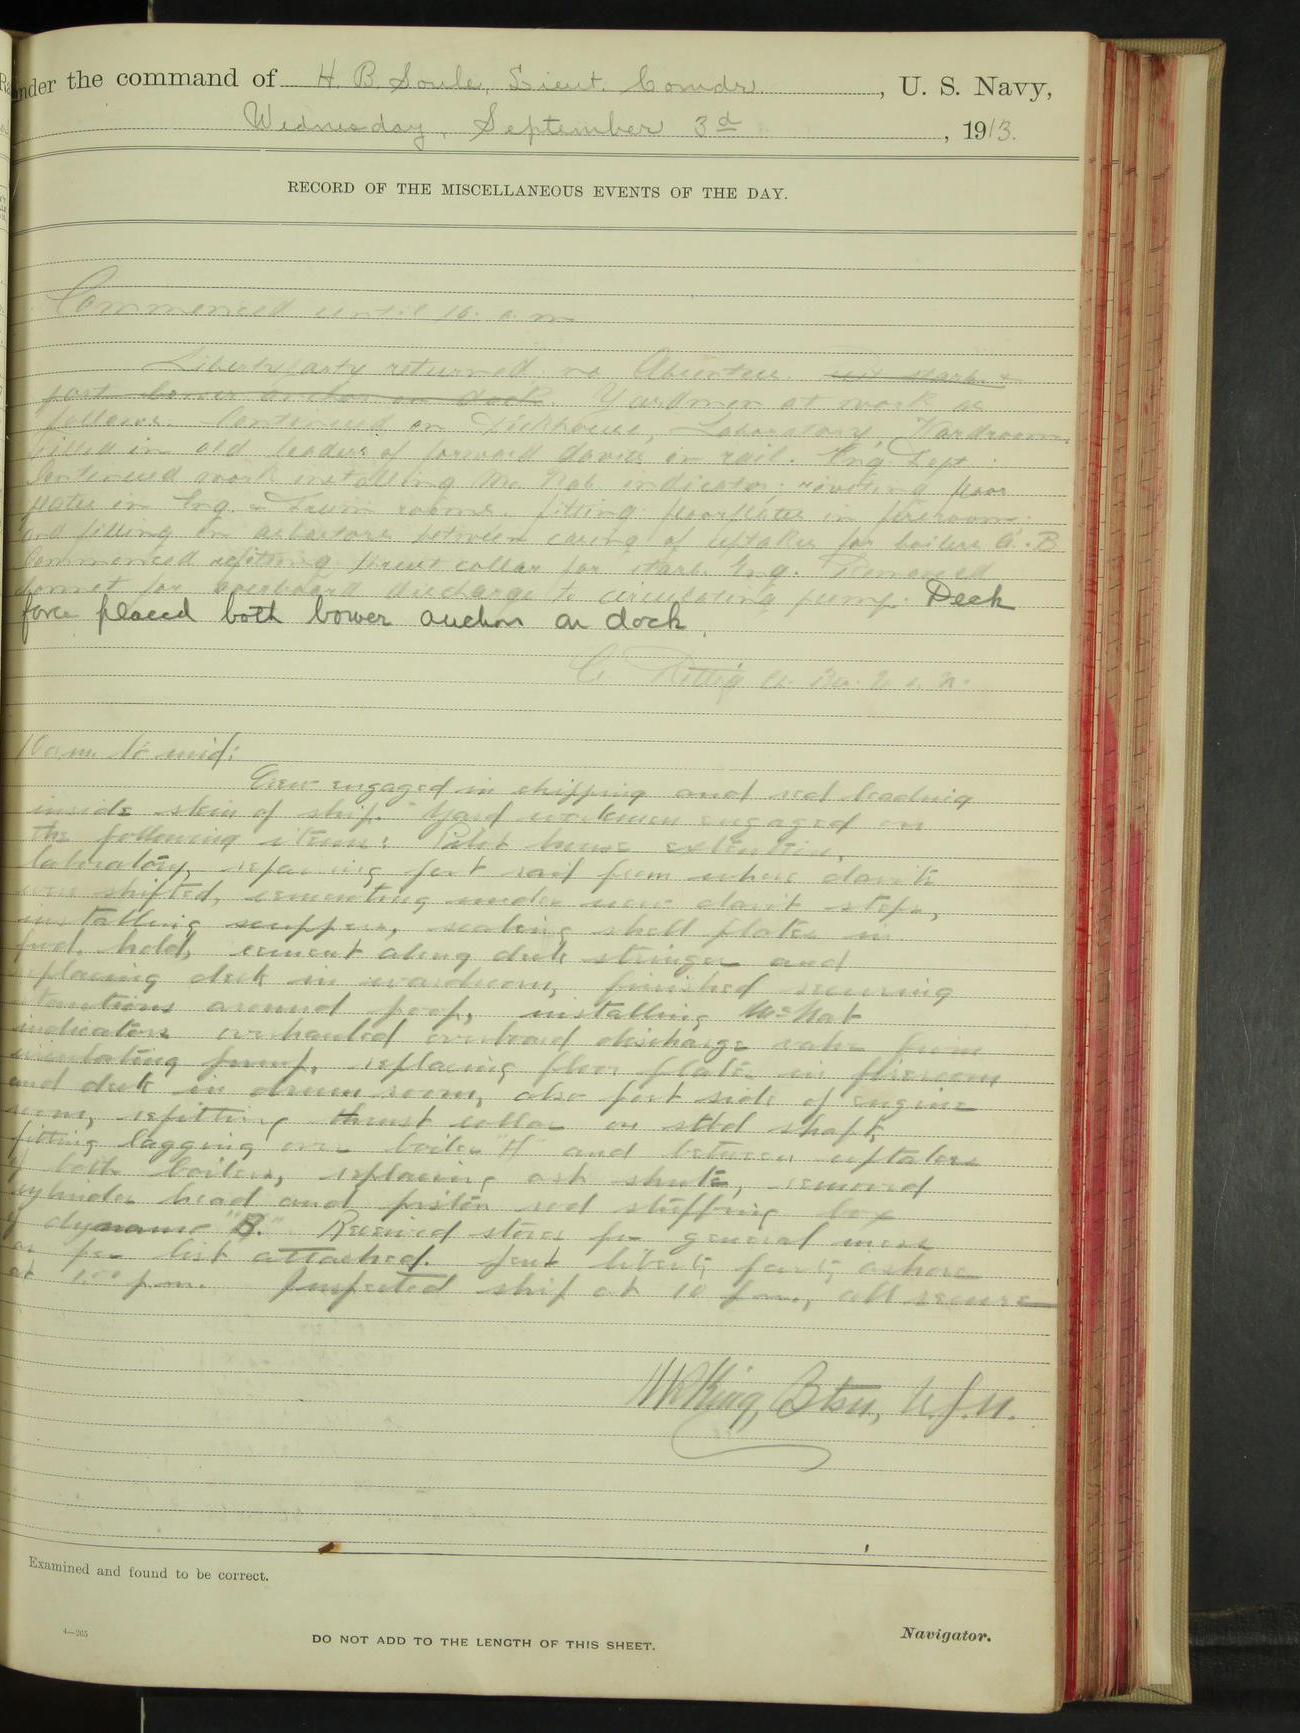 under the command of H. B. Soule, Lieut. Comdr , U. S. Navy,
Wednesday, September 3d , 1913.
RECORD OF THE MISCELLANEOUS EVENTS OF THE DAY.
Commenced until 10. a. m
Liberty party returned no Absentees.
port bower anchor on dock. Yardmen at work as
follows. Continued on Laboratory, Wardroom.
filled in old leaders of forward davits on rail. Eng. Dept.
Continued work installing Mc Nab indicator. riveting floor
plates in Eng. & rooms. fitting floorplates in fireroom.
and filling in asbestos between casing of uptakes for boilers A. B
Commenced refitting thrust collar for starb. Eng. Removed
bonnet for overboard discharge to circulating pump. Deck
force placed both bower anchor on dock.
C. Rettig U. S. N.
10 a.m. to mid:
Crew engaged in chipping and red leading
inside skin of ship. Yard workmen engaged on
the following items: Pilot house extention,
laboratory, repairing port rail from where davits
were shifted, cementing under new davit steps,
installing scuppers, scaling shell plates in
fwd. hold, cement along deck stringer and
replacing deck in wardroom, finished securing
stantions around poop, installing McNab
indicators overhauled overboard discharge valve from
circulating pump, replacing floor plates in fireroom
and deck in drum room, also port side of engine
room, refitting thrust collar on stbd shaft,
fitting lagging over boiler "H" and between uptakes
of both boilers, replacing ash shute, removed
cylinder head and piston rod stuffing box
of dynamo "B." Received stores for general mess
as per list attached. Sent liberty party ashore
at p.m. Inspected ship at 10 p.m., all secure
King, Btsn, U.S.N.
Examined and found to be correct.
4—205
DO NOT ADD TO THE LENGTH OF THIS SHEET.
Navigator.